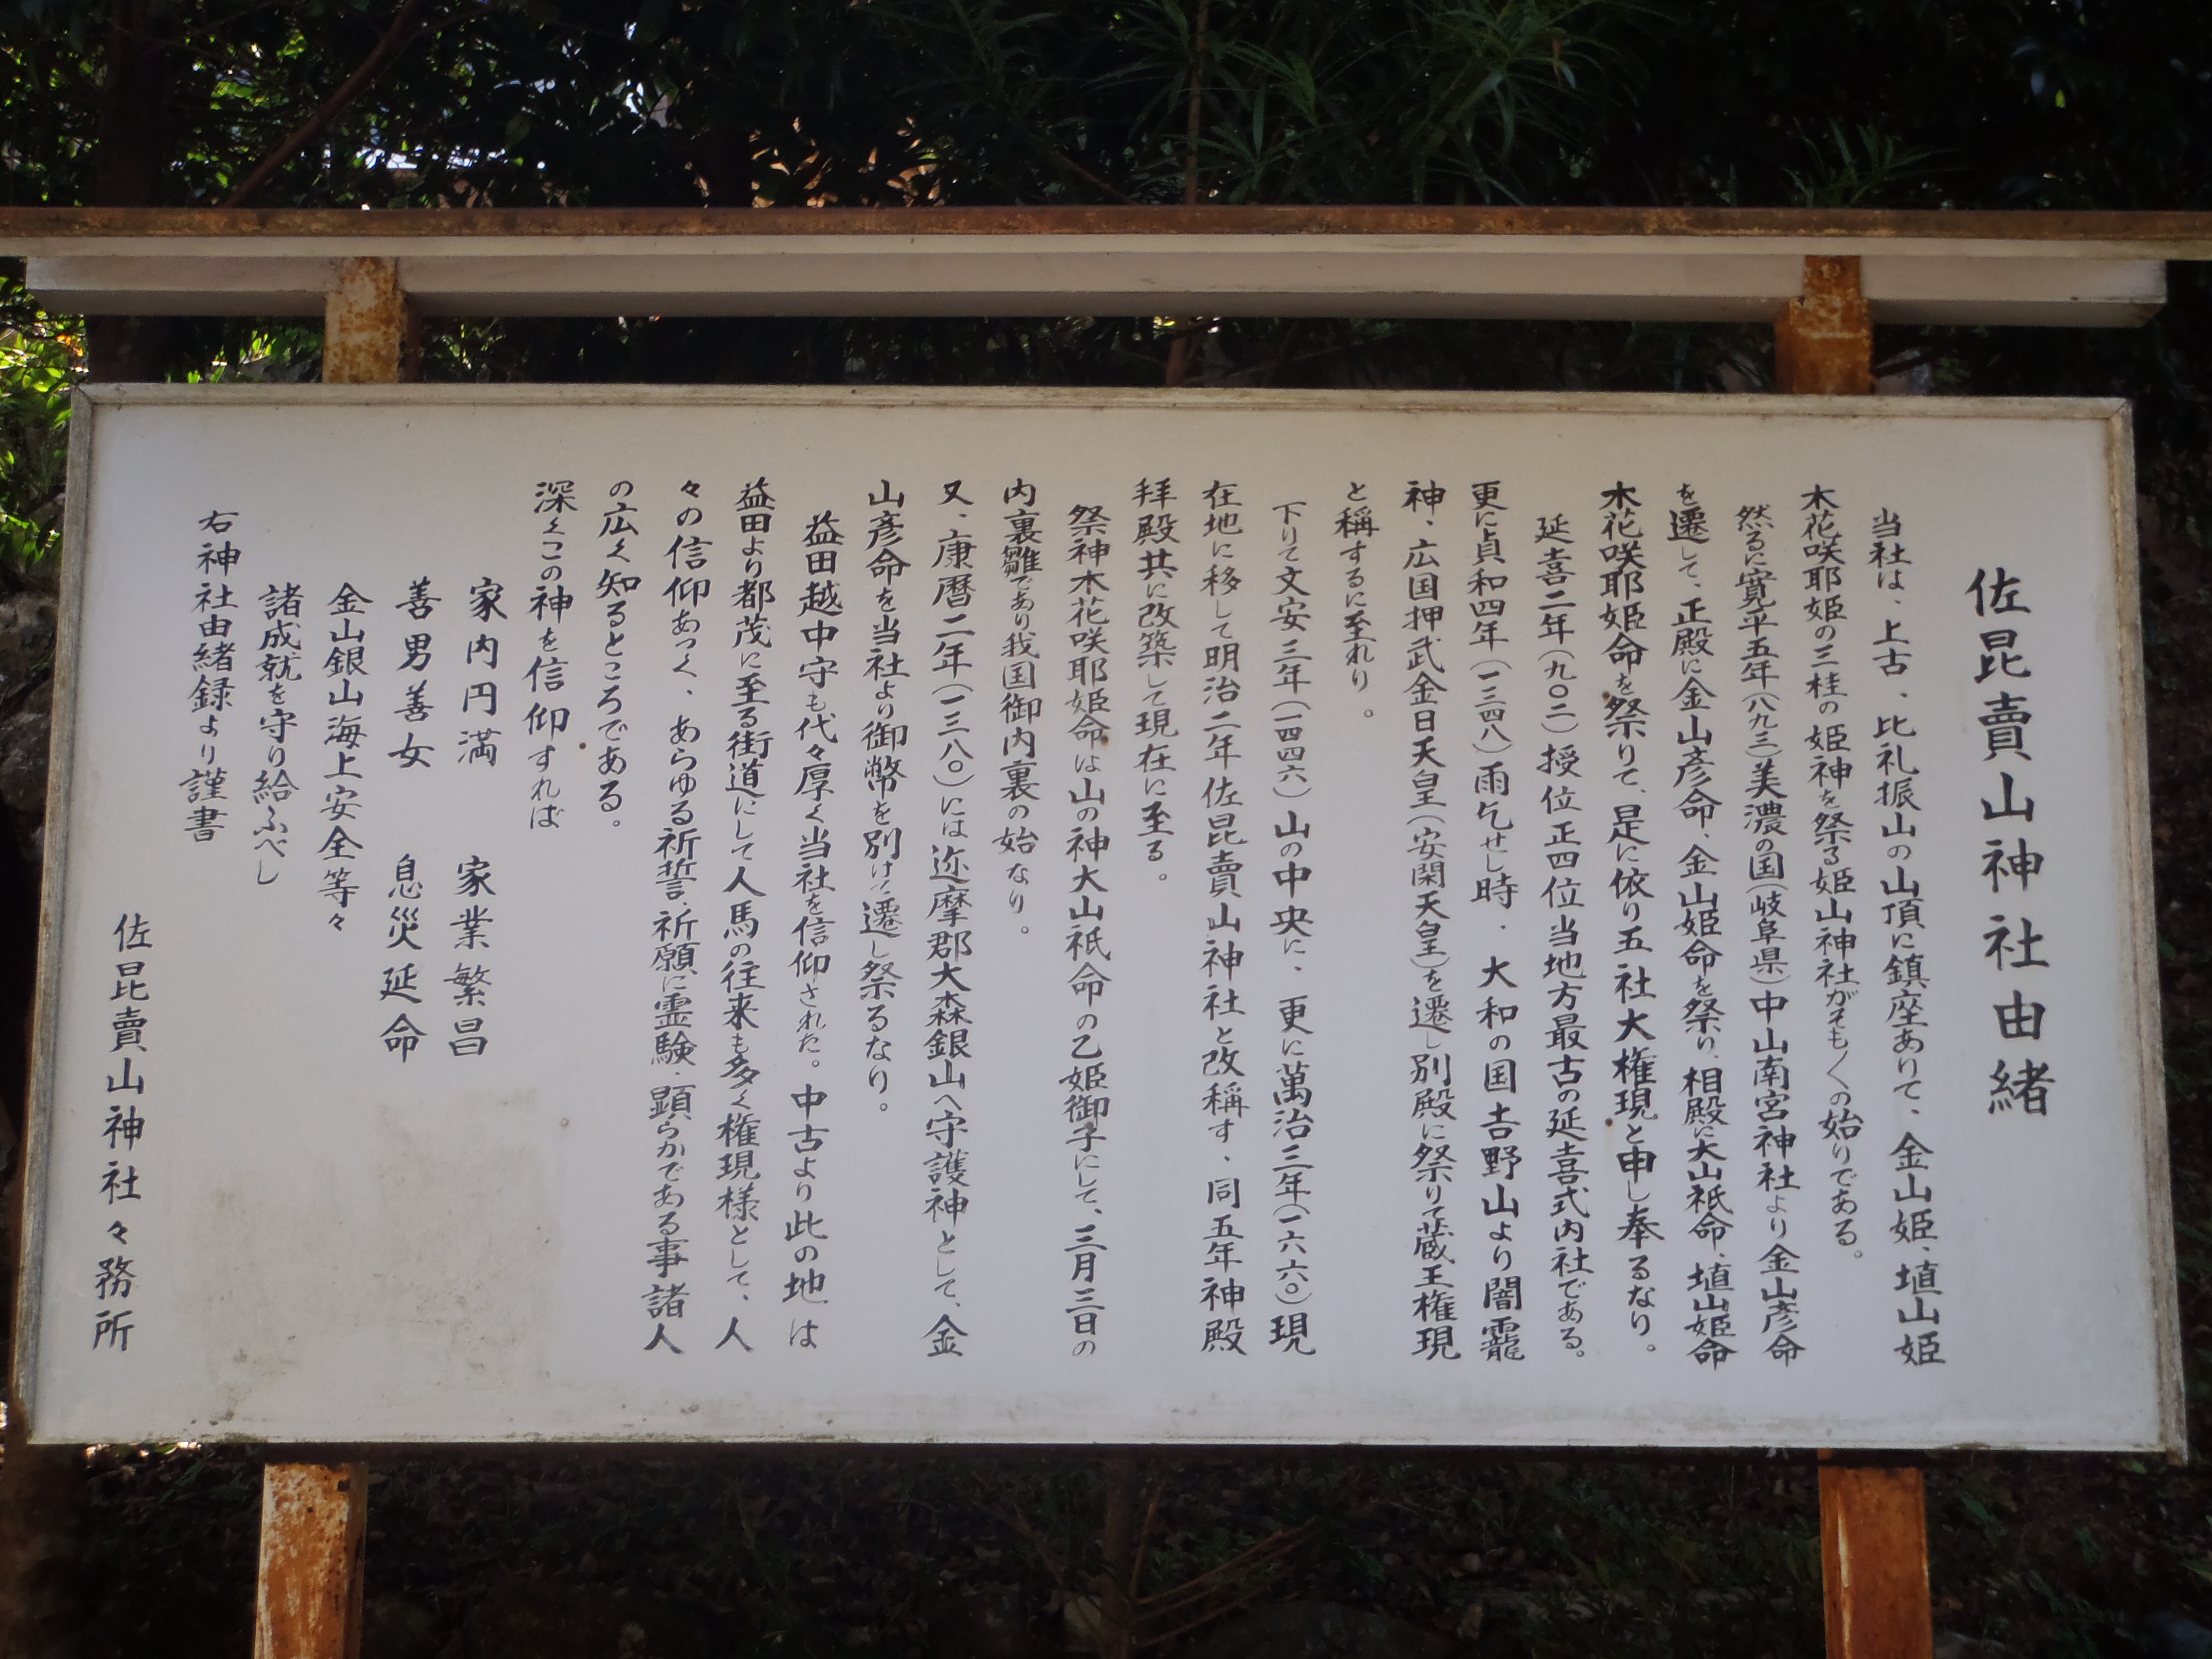 佐毘賣山神社由緒
当社は、上古、比礼振山の山頂に鎮座ありて、金山姫、埴山姫
木花咲耶姫の三柱の姫神を祭る姫山神社がそもそもの始りである。
然るに寛平五年(八九三)美濃の国(岐阜県)中山南宮神社より金山彦命
を遷して、正殿に金山彦命、金山姫命を祭り、相殿に大山祇命、埴山姫命
木花咲耶姫命を祭りて、是に依り五社大権現と申し奉るなり。
延喜二年(九〇二)授位正四位当地方最古の延喜式内社である。
更に貞和四年(一三四八)雨乞せし時、大和の国吉野山より闇龗
神、広国押武金日天皇(安閑天皇)を遷し別殿に祭りて蔵王権現
と稱するに至れり。
下りて文安三年(一四四六)山の中央に、更に萬治三年(一六六〇)現
在地に移して明治二年佐毘賣山神社と改稱す、同五年神殿
拝殿共に改築して現在に至る。
祭神木花咲耶姫命は山の神大山祇命の乙姫御子にして、三月三日の
内裏雛であり我国御内裏の始なり。
又、康暦二年(一三八〇)には迩摩郡大森銀山へ守護神として、金
山彦命を当社より御幣を別け遷し祭るなり。
益田越中守も代々厚く当社を信仰された。中古より此の地は
益田より都茂に至る街道にして人馬の往来も多く権現様として、人
々の信仰あつく、あらゆる祈誓、祈願に霊験、顕らかである事諸人
の広く知るところである。
深くこの神を信仰すれば
家内円満　家業繁昌
善男善女　息災延命
金山銀山海上安全等々
諸成就を守り給ふべし
右神社由緒録より謹書
佐毘賣山神社々務所